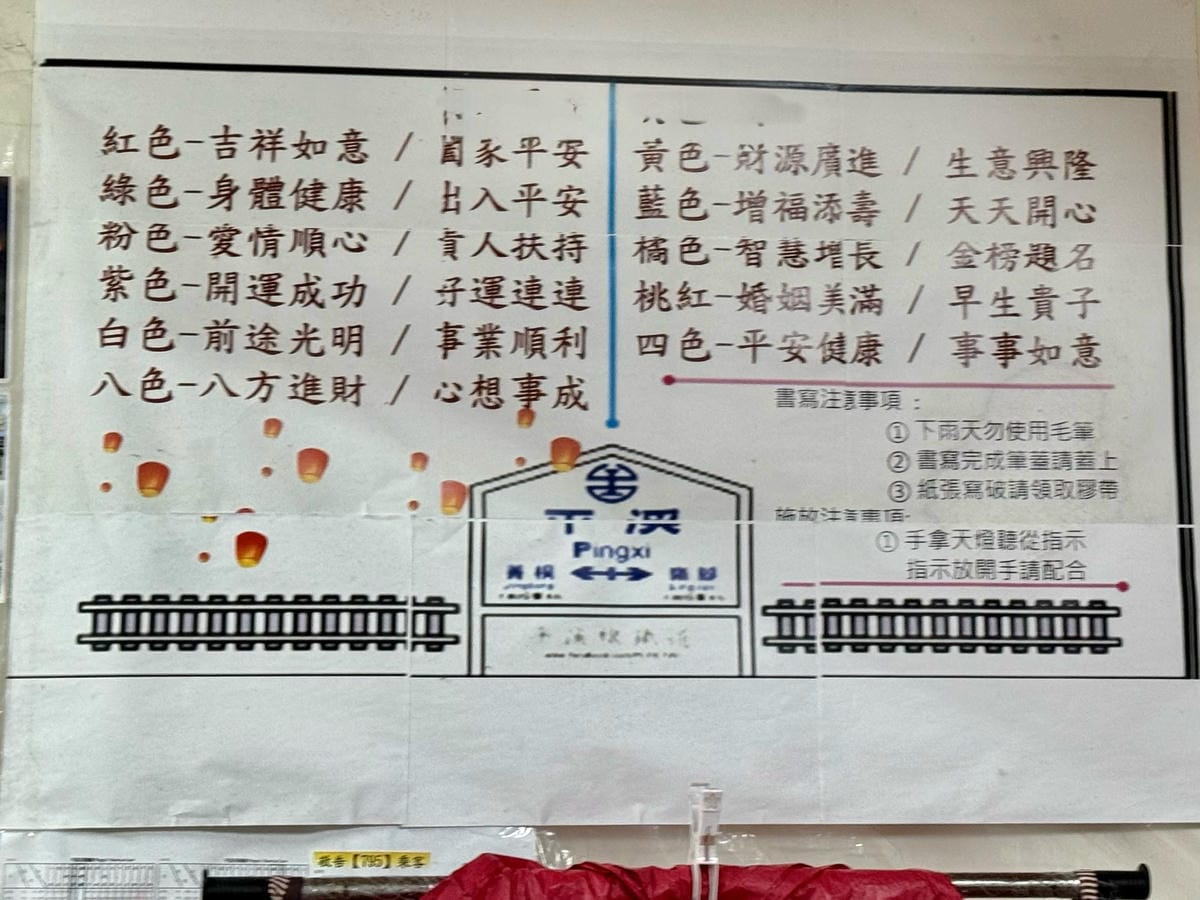 紅色-吉祥如意 / 闔家平安
綠色-身體健康 / 出入平安
粉色-愛情順心 / 貴人扶持
紫色-開運成功 / 好運連連
白色-前途光明 / 事業順利
八色-八方進財 / 心想事成
黃色-財源廣進 / 生意興隆
藍色-增福添壽 / 天天開心
橘色-智慧增長 / 金榜題名
桃紅-婚姻美滿 / 早生貴子
四色-平安健康 / 事事如意
書寫注意事項：
① 下雨天勿使用毛筆
② 書寫完成筆蓋請蓋上
③ 紙張寫破請領取膠帶
施放注意事項:
① 手拿天燈聽從指示
指示放開手請配合
平溪
Pingxi
菁桐 嶺腳
敬告【795】乘客